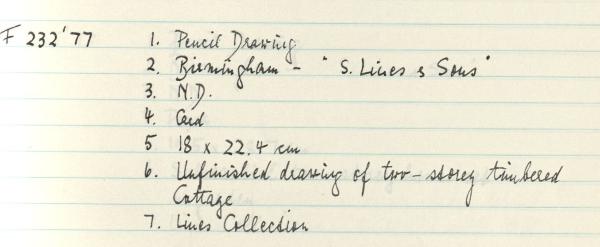 F 232'77 1. Pencil Drawing
2. Birmingham - "S. Lines & Sons"
3. N.D.
4. Card
5 18 x 22.4 cm
6. Unfinished drawing of two-storey timbered
Cottage
7. Lines Collection